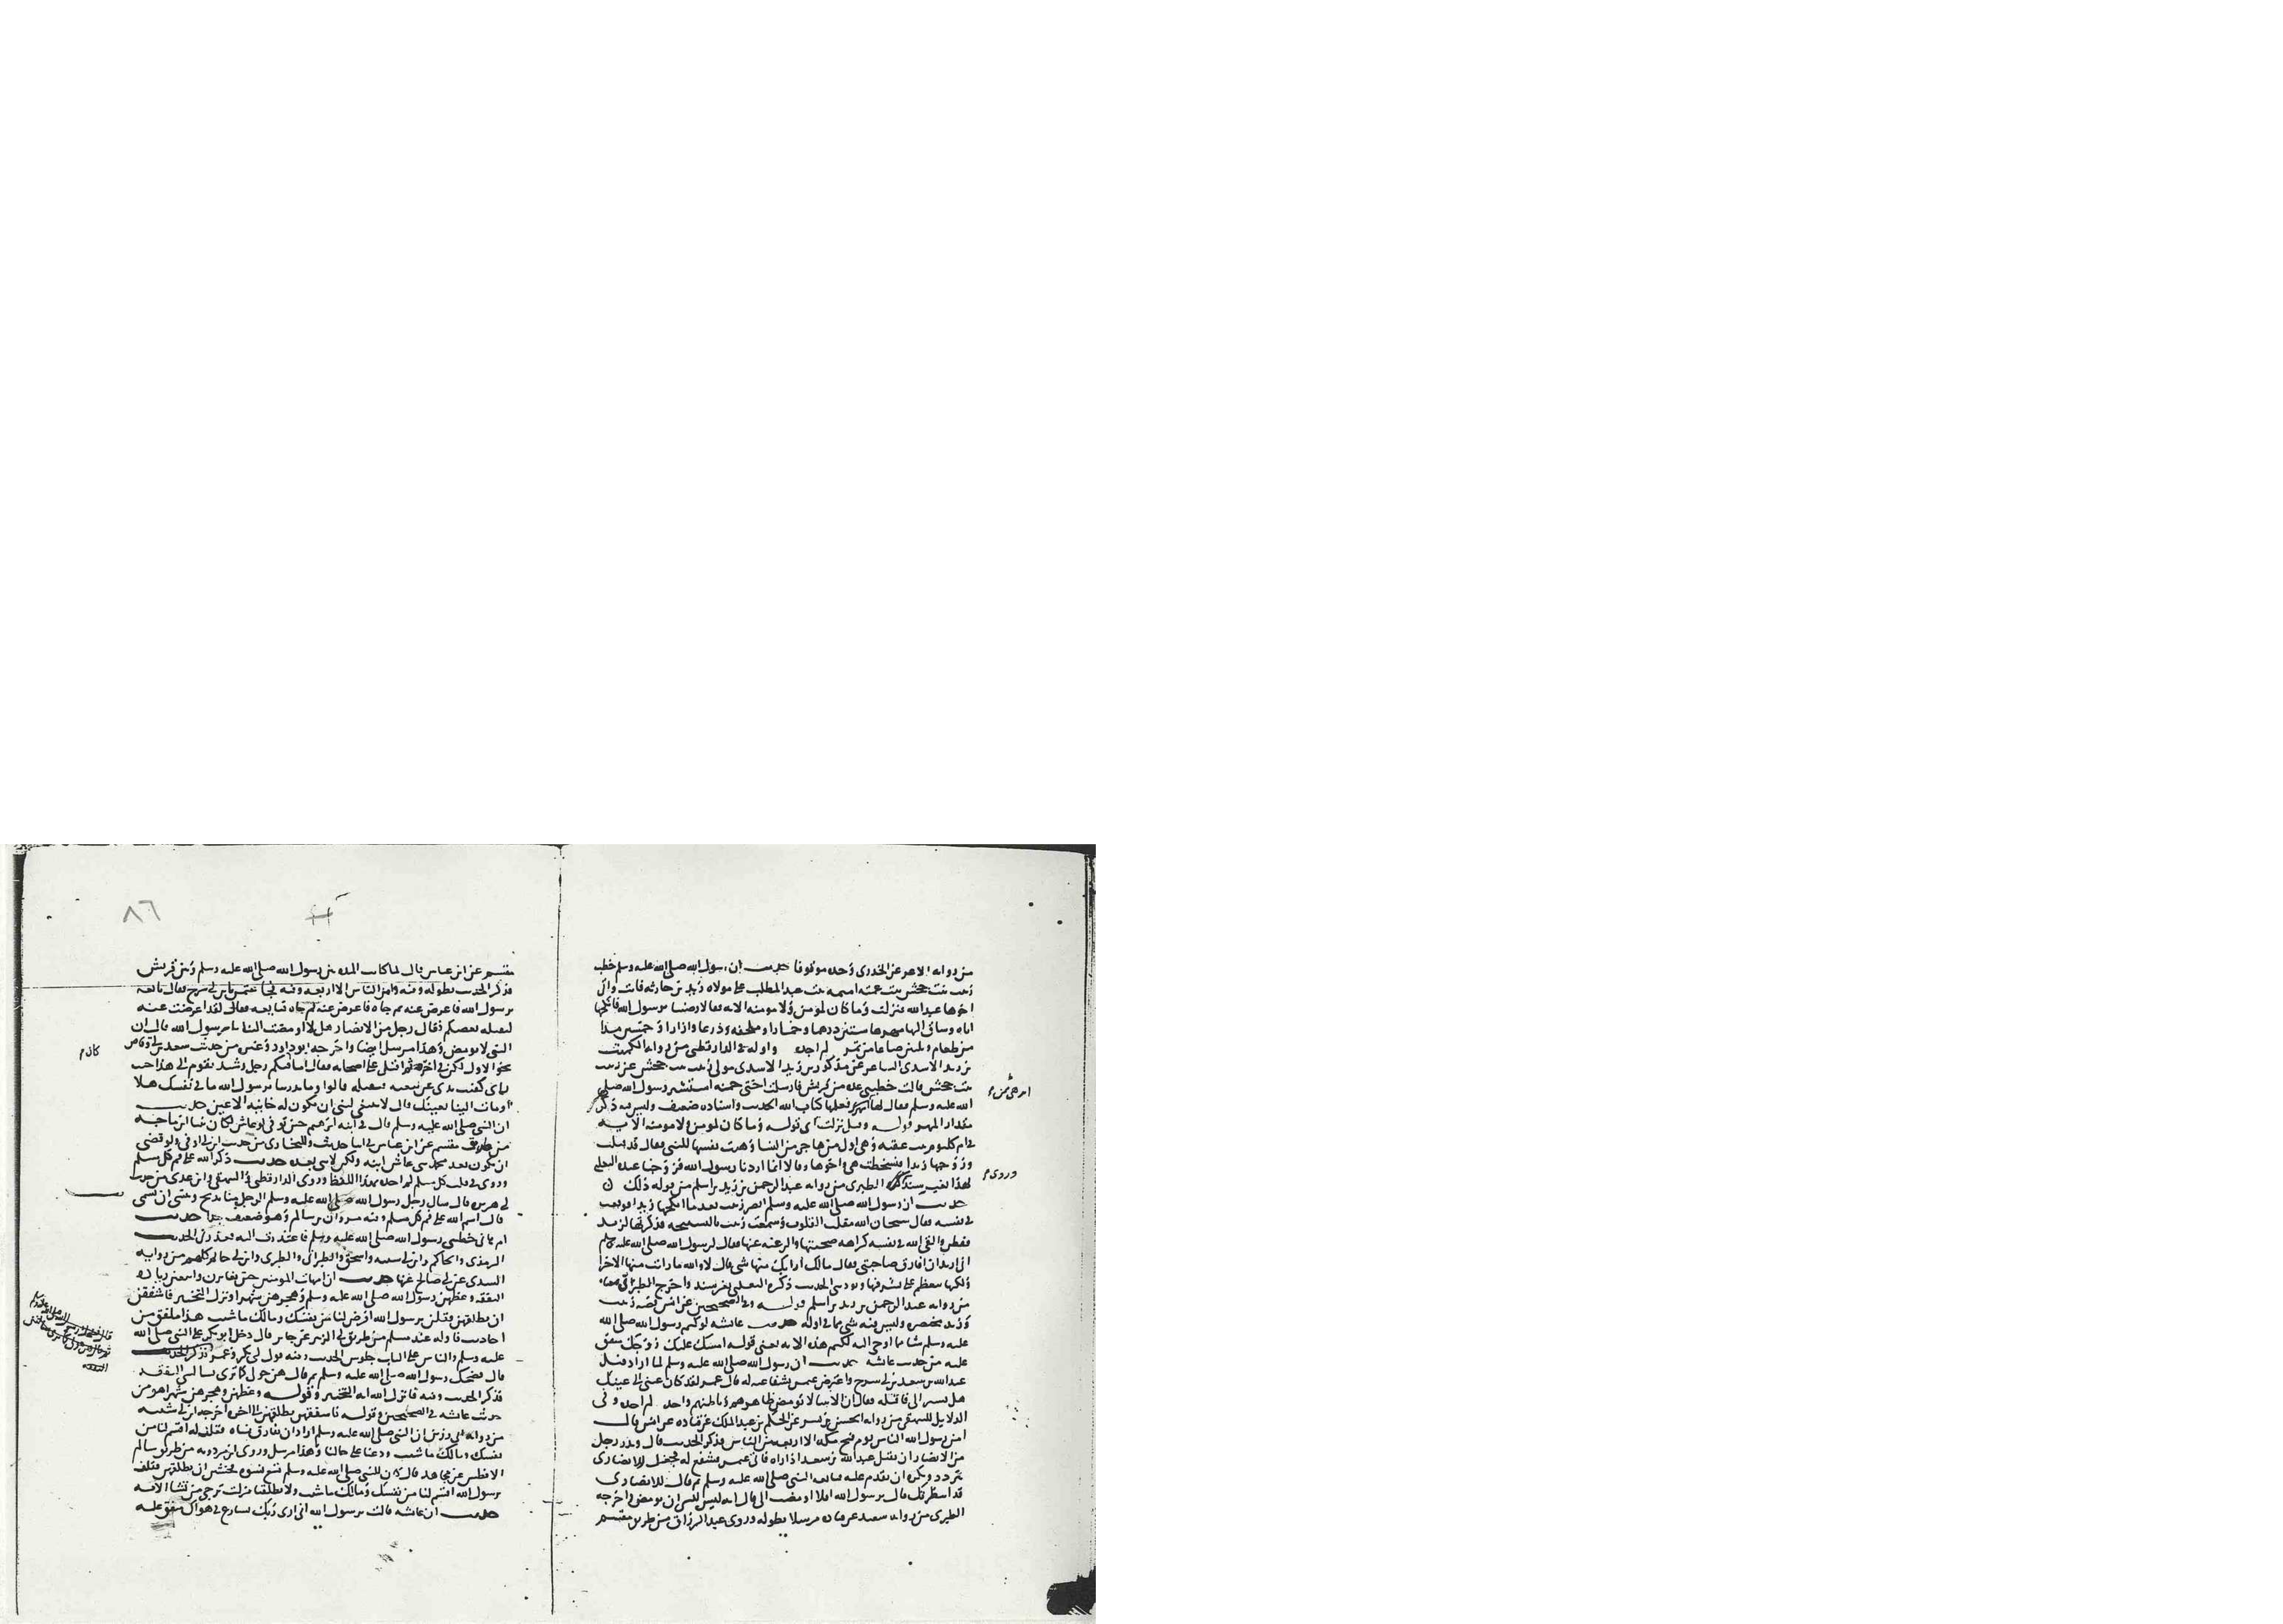 من روايه الاعرج عن الخدرى وحده موقوفا حديث ان رسول الله صلى الله عليه وسلم خطب
زينب بنت جحش بنت عمته اميمه بنت عبد المطلب على مولاه زيد بن حارثه فابت وابى
اخوها عبد الله فنزلت وما كان لمومن ولا مومنه الايه فقالا رضينا يرسول الله فانكحها
اياه وساق اليها مهرها ستين درهما وخمارا وملحفه ودرعا وازارا وخمسين مدا
من طعام وثلثين صاعا من تمر لم اجده واوله فى الدارقطنى من روايه الكميت
بن زيد الاسدى الشاعر عن مذكور بن زيد الاسدى مولى زينب بنت جحش عن زينب
بنت جحش قالت خطبنى عده من قريش فارسلت اختى حمنه استشير رسول الله صلى
الله عليه وسلم فقال لها كتاب الله الحديث واسناده ضعيف وليس فيه ذكر
مقدار المهر قوله وقيل نزلت اى قوله وما كان لمومن ولا مومنه الايه
فى ام كلثوم بنت عقبه وهى اول من هاجر من النسا وهبت نفسها للنبى فقال قد قبلت
وزوجها زيدا فسخطت هى واخوها وقالا انما اردنا رسول الله فزوجنا عبده الثعلبى
هذا بغير سند الطبرى من روايه عبد الرحمن بن زيد بن اسلم من قوله ذلك
وروى
حديث ان رسول الله صلى الله عليه وسلم ابصر زينب بعد ما انكحها زيدا فوقعت
فى نفسه فقال سبحان الله مقلب القلوب وسمعت زينب بالتسبيحه فذكرتها لزيد
ففطن والقى الله فى نفسه كراهه صحبتها والرغبه عنها فقال لرسول الله صلى الله عليه وسلم
انى اريد ان افارق صاحبتى فقال مالك ارابك منها شى قال لا والله ما رايت منها الا خيرا
ولكنها تتعظم على لشرفها وتوذينى الحديث ذكره الثعلبى بغير سند واخرج الطبرى معناه
من روايه عبد الرحمن بن زيد بن اسلم قوله وفى الصحيحين عن انس قصه زينب
وزيد مختصره وليس فيه شى مما فى اوله حديث عايشه لو كتم رسول الله صلى الله
عليه وسلم شيا مما اوحى اليه لكتم هذه الايه يعنى قوله امسك عليك زوجك متفق
عليه من حديث عايشه حديث ان رسول الله صلى الله عليه وسلم لما اراد قتل
عبد الله بن سعد بن ابى سرح واعترض عثمن بشفاعته له قال عمر لقد كان عينى الى عينك
هل تشير الى فاقتله فقال ان الانبيا لا تومض ظاهرهم وباطنهم واحد لم اجده وفى
الدلايل للبيهقى من روايه الحسن بن بشر عن الحكم بن عبد الملك عن قتاده عن انس قال
امن رسول الله الناس يوم فتح مكه الا اربعه من الناس فذكر الحديث قال ونذر رجل
من الانصار ان يقتل عبد الله بن سعد اذا راه فاتى عثمن فشفع له فجعل الانصارى
يتردد ويكره ان يقدم عليه فبايعه النبى صلى الله عليه وسلم ثم قال للانصارى
قد انتظرتك قال يرسول الله افلا اومضت الى قال انه ليس لنبى ان يومض واخرجه
الطبرى من روايه سعيد عن قتاده مرسلا بطوله وروى عبد الرزاق من طريق مقسم
٨٦
مقسم عن ابن عباس قال لما كانت المده بين رسول الله صلى الله عليه وسلم وبين قريش
فذكر الحديث بطوله وفيه وامن الناس الا اربعه وفيه فجا عثمن بابن ابى سرح فقال بايعه
يرسول الله فاعرض عنه ثم جاه فاعرض عنه ثم جاه فبايعه فقال لقد اعرضت عنه
ليقتله بعضكم فقال رجل من الانصار هل لا اومضت الينا يرسول الله قال ان
النبى لا يومض وهذا مرسل ايضا واخرجه ابو داود وغيره من حديث سعد بن ابى وقاص
نحو الاول لكن فى اخره ثم اقبل على اصحابه فقال اما فيكم رجل رشيد يقوم الى هذا حيث
رانى كففت يدى عن بيعته فيقتله قالوا وما يدرينا يرسول الله ما فى نفسك هلا
اومات الينا بعينك قال لا ينبغى لنبى ان يكون له خاينه الاعين حديث
ان النبى صلى الله عليه وسلم قال فى ابنه ابرهيم حين توفى لو عاش لكان نبيا ابن ماجه
من طريق مقسم عن ابن عباس فى اثنا حديث وللبخارى من حديث ابن ابى اوفى ولو قضى
ان يكون بعد محمد نبى عاش ابنه ولكن لا نبى بعده حديث ذكر الله على فم كل مسلم
وروى فى قلب كل مسلم لم اجده بهذا اللفظ وروى الدارقطنى والبيهقى وابن عدى من حديث
ابى هريره قال سال رجل رسول الله صلى الله عليه وسلم الرجل منا يذبح وينسى ان يسمى
قال اسم الله على فم كل مسلم وفيه مروان بن سالم وهو ضعيف جدا حديث
ام هانى خطبنى رسول الله صلى الله عليه وسلم فاعتذرت اليه فعذرنى الحديث
الترمذى والحاكم وابن ابى شيبه واسحق والطبرانى والطبرى وابن ابى حاتم كلهم من روايه
السدى عن ابى صالح عنها حديث ان امهات المومنين حين تغايرن وابتغين زياده
النفقه وغظن رسول الله صلى الله عليه وسلم وهجرهن شهرا ونزل التخيير فاشفقن
ان يطلقهن وقلن يرسول الله افرض لنا من نفسك ومالك ما شيت هذا ملفق من
احاديث فاوله عند مسلم من طريق ابى الزبير عن جابر قال دخل ابو بكر على النبى صلى الله
عليه وسلم والناس على الباب جلوس الحديث وفيه قول ابى بكر وعمر فذكر الحديث
قال فضحك رسول الله صلى الله عليه وسلم ثم قال هن حولى كما ترى يسالننى النفقه
فذكر الحديث وفيه فانزل الله ايه التخيير وقوله وغظنه وهجرهن شهرا هو من
حديث عايشه فى الصحيحين وقوله فاشفقن يطلقهن الى اخره اخرجه ابن ابى شيبه
من روايه ابى رزين ان النبى صلى الله عليه وسلم اراد ان يفارق نساه فقلن له اقسم لنا من
نفسك ومالك ما شيت ودعنا على حالنا وهذا مرسل وروى ابن مردويه من طريق سالم
الافطس عن مجاهد قال كان للنبى صلى الله عليه وسلم تسع نسوه فخشين ان يطلقهن فقلن
يرسول الله اقسم لنا من نفسك ومالك ما شيت ولا تطلقنا فنزلت ترجى من تشا الايه
حديث ان عايشه قالت يرسول الله انى ارى ربك يسارع فى هواك متفق عليه